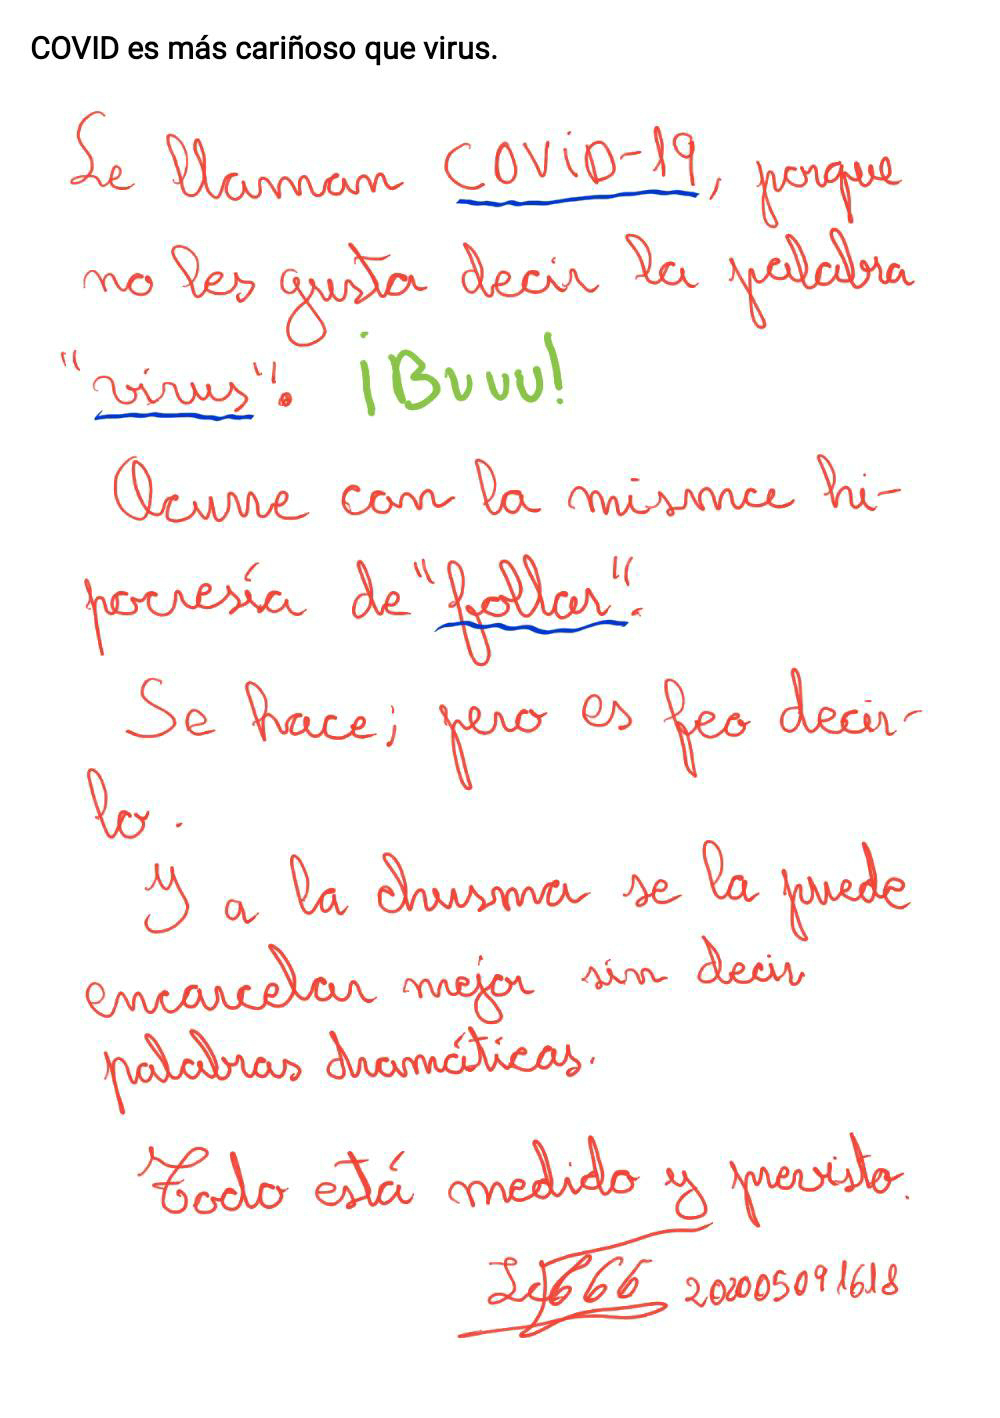 COVID es más cariñoso que virus.
Le llaman COViD-19, porque
no les gusta decir la palabra
"virus". ¡Buuu!
Ocurre con la misma hi-
pocresía de "follar".
Se hace; pero es feo decir-
lo.
Y a la chusma se la puede
encarcelar mejor sin decir
palabras dramáticas.
Todo está medido y previsto.
666 202005091618